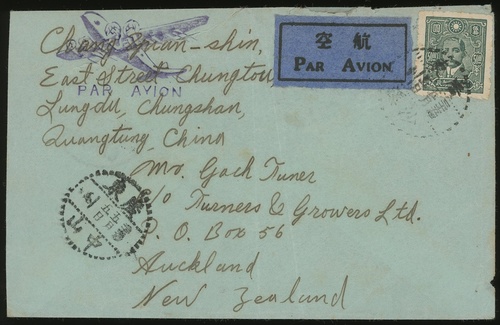 Chang Yuan-shin,
East Street Chungtou
PAR AVION
Lungdu, Chungshan,
Quangtung, China
空航
PAR AVION
Mr. Gock Tuner
c/o Turners & Growers Ltd.
P. O. Box 56
Auckland
New Zealand
廣東
中山